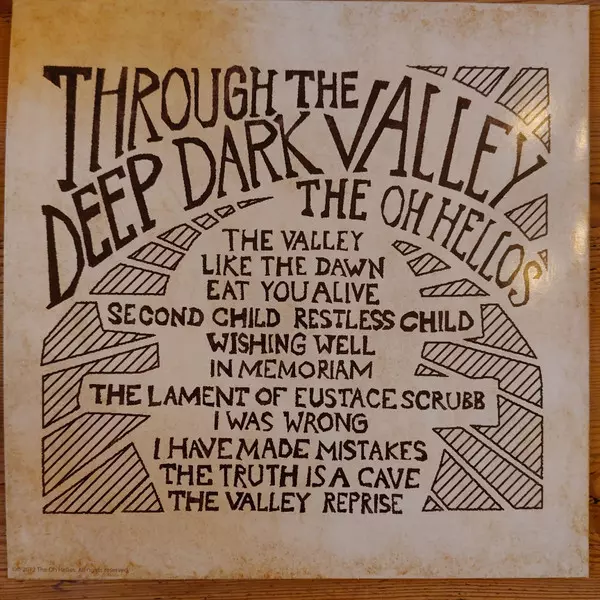 THROUGH THE
DEEP DARK VALLEY
THE OH HELLOS
THE VALLEY
LIKE THE DAWN
EAT YOU ALIVE
SECOND CHILD RESTLESS CHILD
WISHING WELL
IN MEMORIAM
THE LAMENT OF EUSTACE SCRUBB
I WAS WRONG
I HAVE MADE MISTAKES
THE TRUTH IS A CAVE
THE VALLEY REPRISE
2012 The Oh Hellos. All rights reserved.